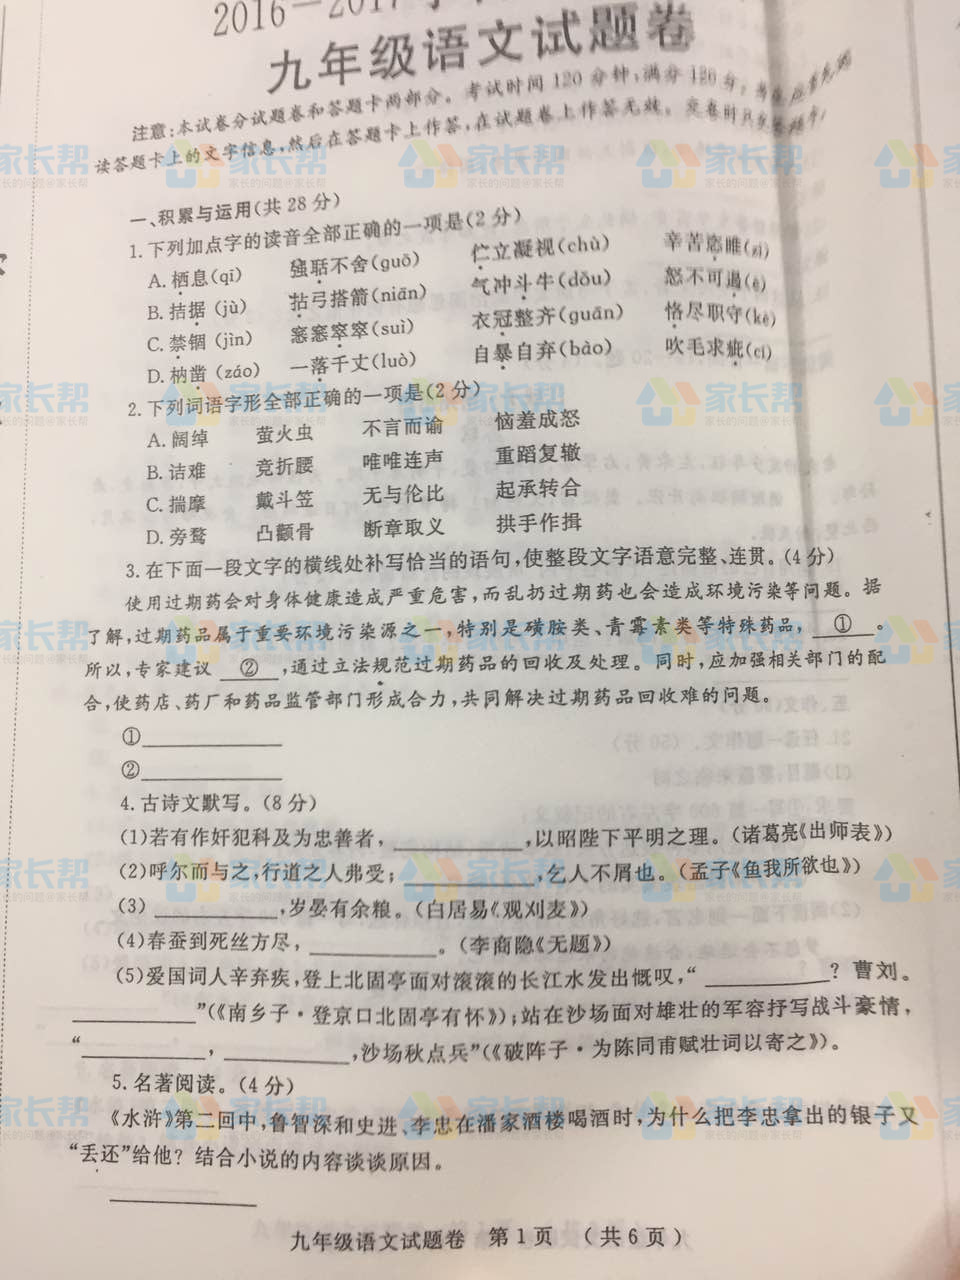 2016－2017学
九年级语文试题卷
注意：本试卷分试题卷和答题卡两部分。考试时间120分钟，满分120分，
读答题卡上的文字信息，然后在答题卡上作答，在试题卷上作答无效。交卷时只交答题卡
一、积累与运用(共28分)
1.下列加点字的读音全部正确的一项是(2分)
A.栖息(qī) 强聒不舍(guō) 伫立凝视(chù) 辛苦恣睢(zì)
B.拮据(jù) 拈弓搭箭(niān) 气冲斗牛(dǒu) 怒不可遏(è)
C.禁锢(jìn) 窸窸窣窣(suì) 衣冠整齐(guān) 恪尽职守(kè)
D.枘凿(záo) 一落千丈(luò) 自暴自弃(bào) 吹毛求疵(cī)
2.下列词语字形全部正确的一项是(2分)
A.阔绰 萤火虫 不言而谕 恼羞成怒
B.诘难 竞折腰 唯唯连声 重蹈复辙
C.揣摩 戴斗笠 无与伦比 起承转合
D.旁鹜 凸颧骨 断章取义 拱手作揖
3.在下面一段文字的横线处补写恰当的语句，使整段文字语意完整、连贯。(4分)
使用过期药会对身体健康造成严重危害，而乱扔过期药也会造成环境污染等问题。据
了解，过期药品属于重要环境污染源之一，特别是磺胺类、青霉素类等特殊药品，①。
所以，专家建议②，通过立法规范过期药品的回收及处理。同时，应加强相关部门的配
合，使药店、药厂和药品监管部门形成合力，共同解决过期药品回收难的问题。
①__________
②__________
4.古诗文默写。(8分)
(1)若有作奸犯科及为忠善者，__________，以昭陛下平明之理。(诸葛亮《出师表》)
(2)呼尔而与之，行道之人弗受；__________，乞人不屑也。(孟子《鱼我所欲也》)
(3)__________，岁晏有余粮。(白居易《观刈麦》)
(4)春蚕到死丝方尽，__________。(李商隐《无题》)
(5)爱国词人辛弃疾，登上北固亭面对滚滚的长江水发出慨叹，“__________？曹刘。
__________”(《南乡子·登京口北固亭有怀》)；站在沙场面对雄壮的军容抒写战斗豪情，
“__________，__________，沙场秋点兵”(《破阵子·为陈同甫赋壮词以寄之》)。
5.名著阅读。(4分)
《水浒》第二回中，鲁智深和史进、李忠在潘家酒楼喝酒时，为什么把李忠拿出的银子又
“丢还”给他？结合小说的内容谈谈原因。
__________
九年级语文试题卷 第1页 (共6页)
家长帮
家长的问题@家长帮